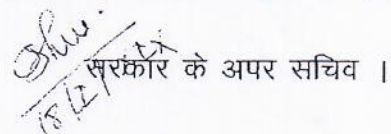 सरकार के अपर सचिव ।